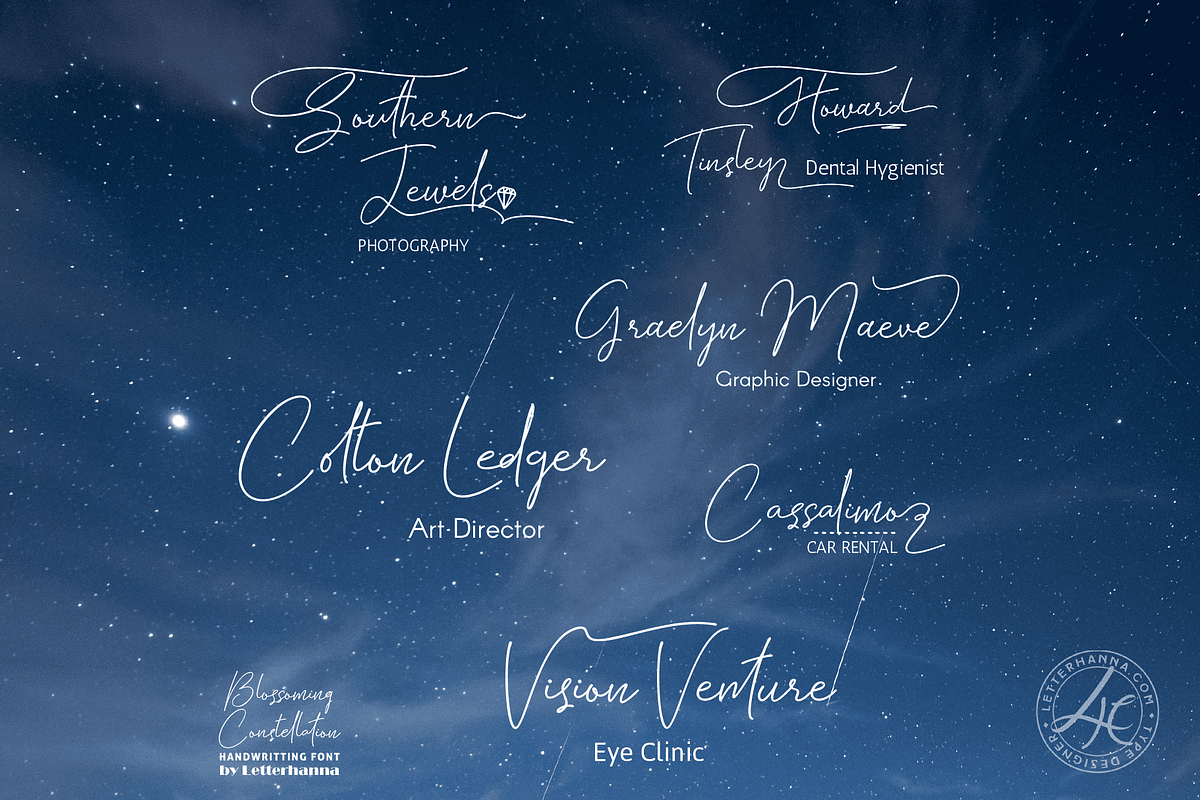 Southern
Jewels
PHOTOGRAPHY
Howard
Tinsley Dental Hygienist
Graelyn Maeve
Graphic Designer
Colton Ledger
Art-Director
Cassalimo
CAR RENTAL
Vision Venture
Eye Clinic
Blossoming
Constellation
HANDWRITTING FONT
by Letterhanna
LETTERHANNA.COM • TYPE DESIGNER •